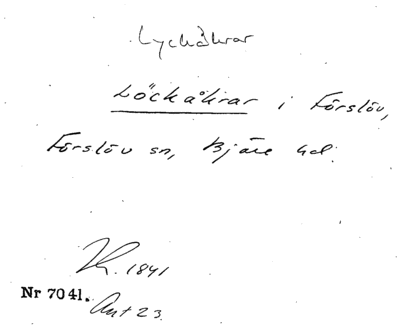 Lyckåkrar
Löckåkrar i Förslöv,
Förslöv sn, Bjäre hd.
1841
Nr 7041.
Ant 23.